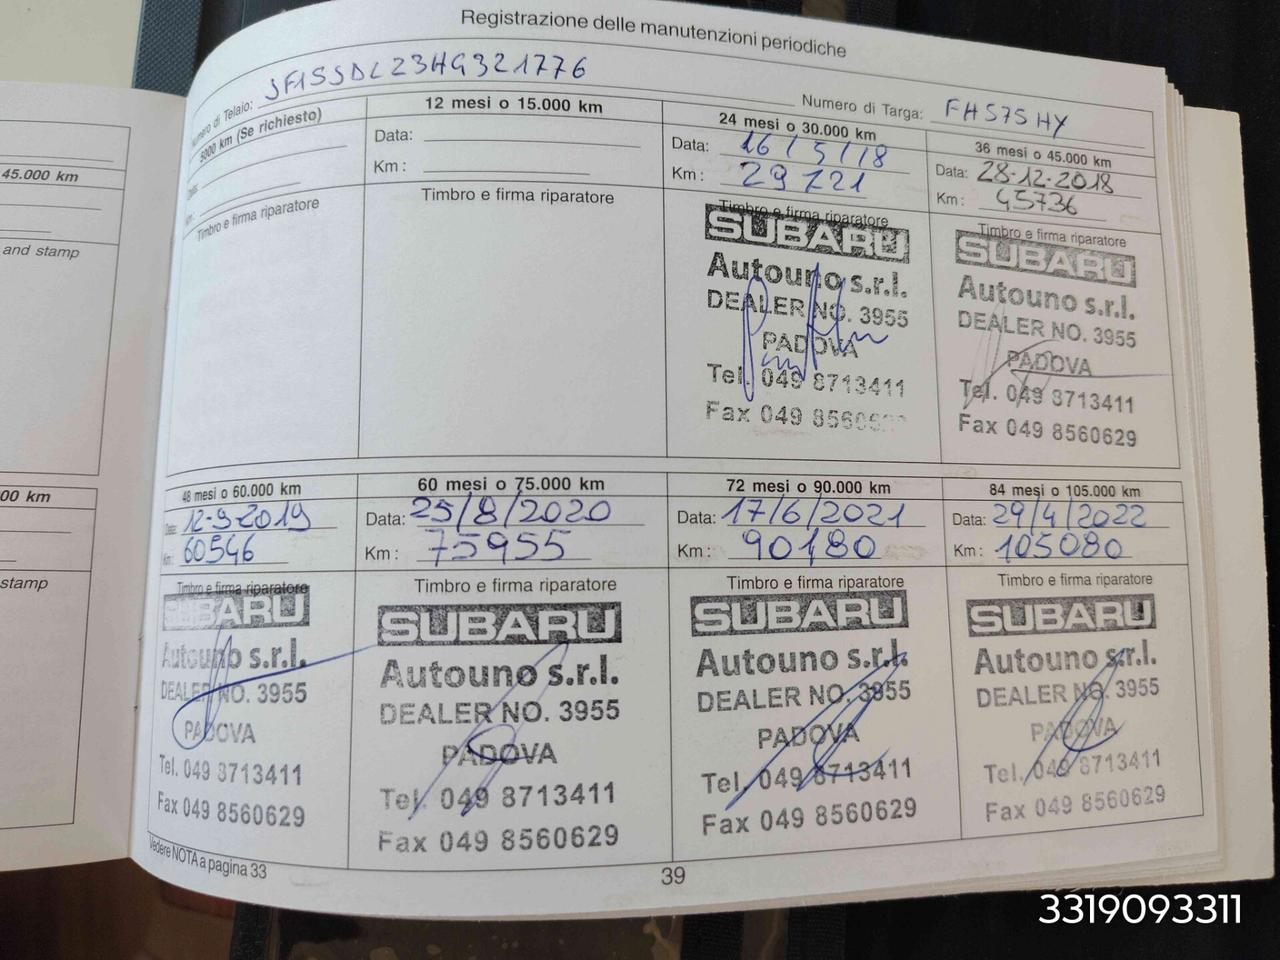 Registrazione delle manutenzioni periodiche
Numero di Telaio: JF1SJDLZ3HG321776
Numero di Targa: FH575HY
5000 km (Se richiesto)
Km:
Timbro e firma riparatore
12 mesi o 15.000 km
Data:
Km:
Timbro e firma riparatore
24 mesi o 30.000 km
Data: 16/5/18
Km: 29721
Timbro e firma riparatore
SUBARU
Autouno s.r.l.
DEALER NO. 3955
PADOVA
Tel. 049 8713411
Fax 049 8560
36 mesi o 45.000 km
Data: 28-12-2018
Km: 45736
Timbro e firma riparatore
SUBARU
Autouno s.r.l.
DEALER NO. 3955
PADOVA
Tel. 049 8713411
Fax 049 8560629
48 mesi o 60.000 km
Data: 12-9-2019
Km: 60546
Timbro e firma riparatore
SUBARU
Autouno s.r.l.
DEALER NO. 3955
PADOVA
Tel. 049 8713411
Fax 049 8560629
60 mesi o 75.000 km
Data: 25/8/2020
Km: 75955
Timbro e firma riparatore
SUBARU
Autouno s.r.l.
DEALER NO. 3955
PADOVA
Tel. 049 8713411
Fax 049 8560629
72 mesi o 90.000 km
Data: 17/6/2021
Km: 90180
Timbro e firma riparatore
SUBARU
Autouno s.r.l.
DEALER NO. 3955
PADOVA
Tel. 049 8713411
Fax 049 8560629
84 mesi o 105.000 km
Data: 29/4/2022
Km: 105080
Timbro e firma riparatore
SUBARU
Autouno s.r.l.
DEALER NO. 3955
PADOVA
Tel. 049 8713411
Fax 049 8560629
Vedere NOTA a pagina 33
39
45.000 km
and stamp
00 km
stamp
3319093311